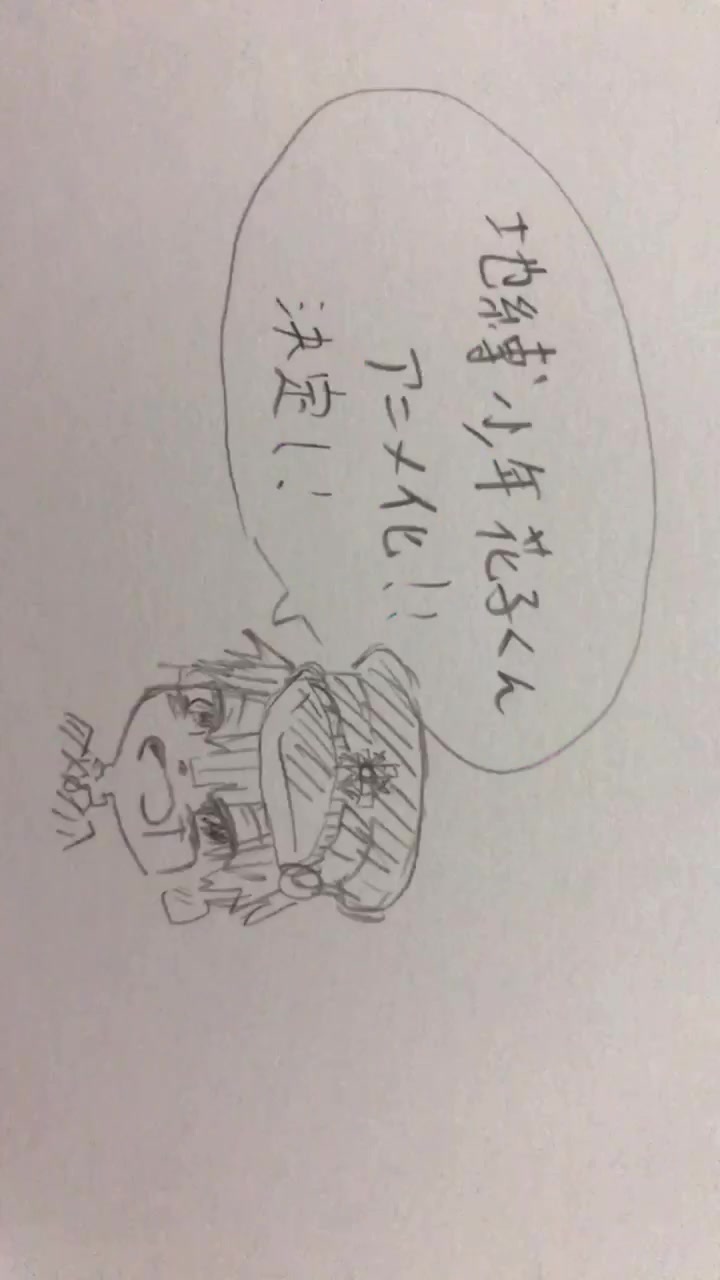 地縛少年花子くん
アニメ化!!
決定!!